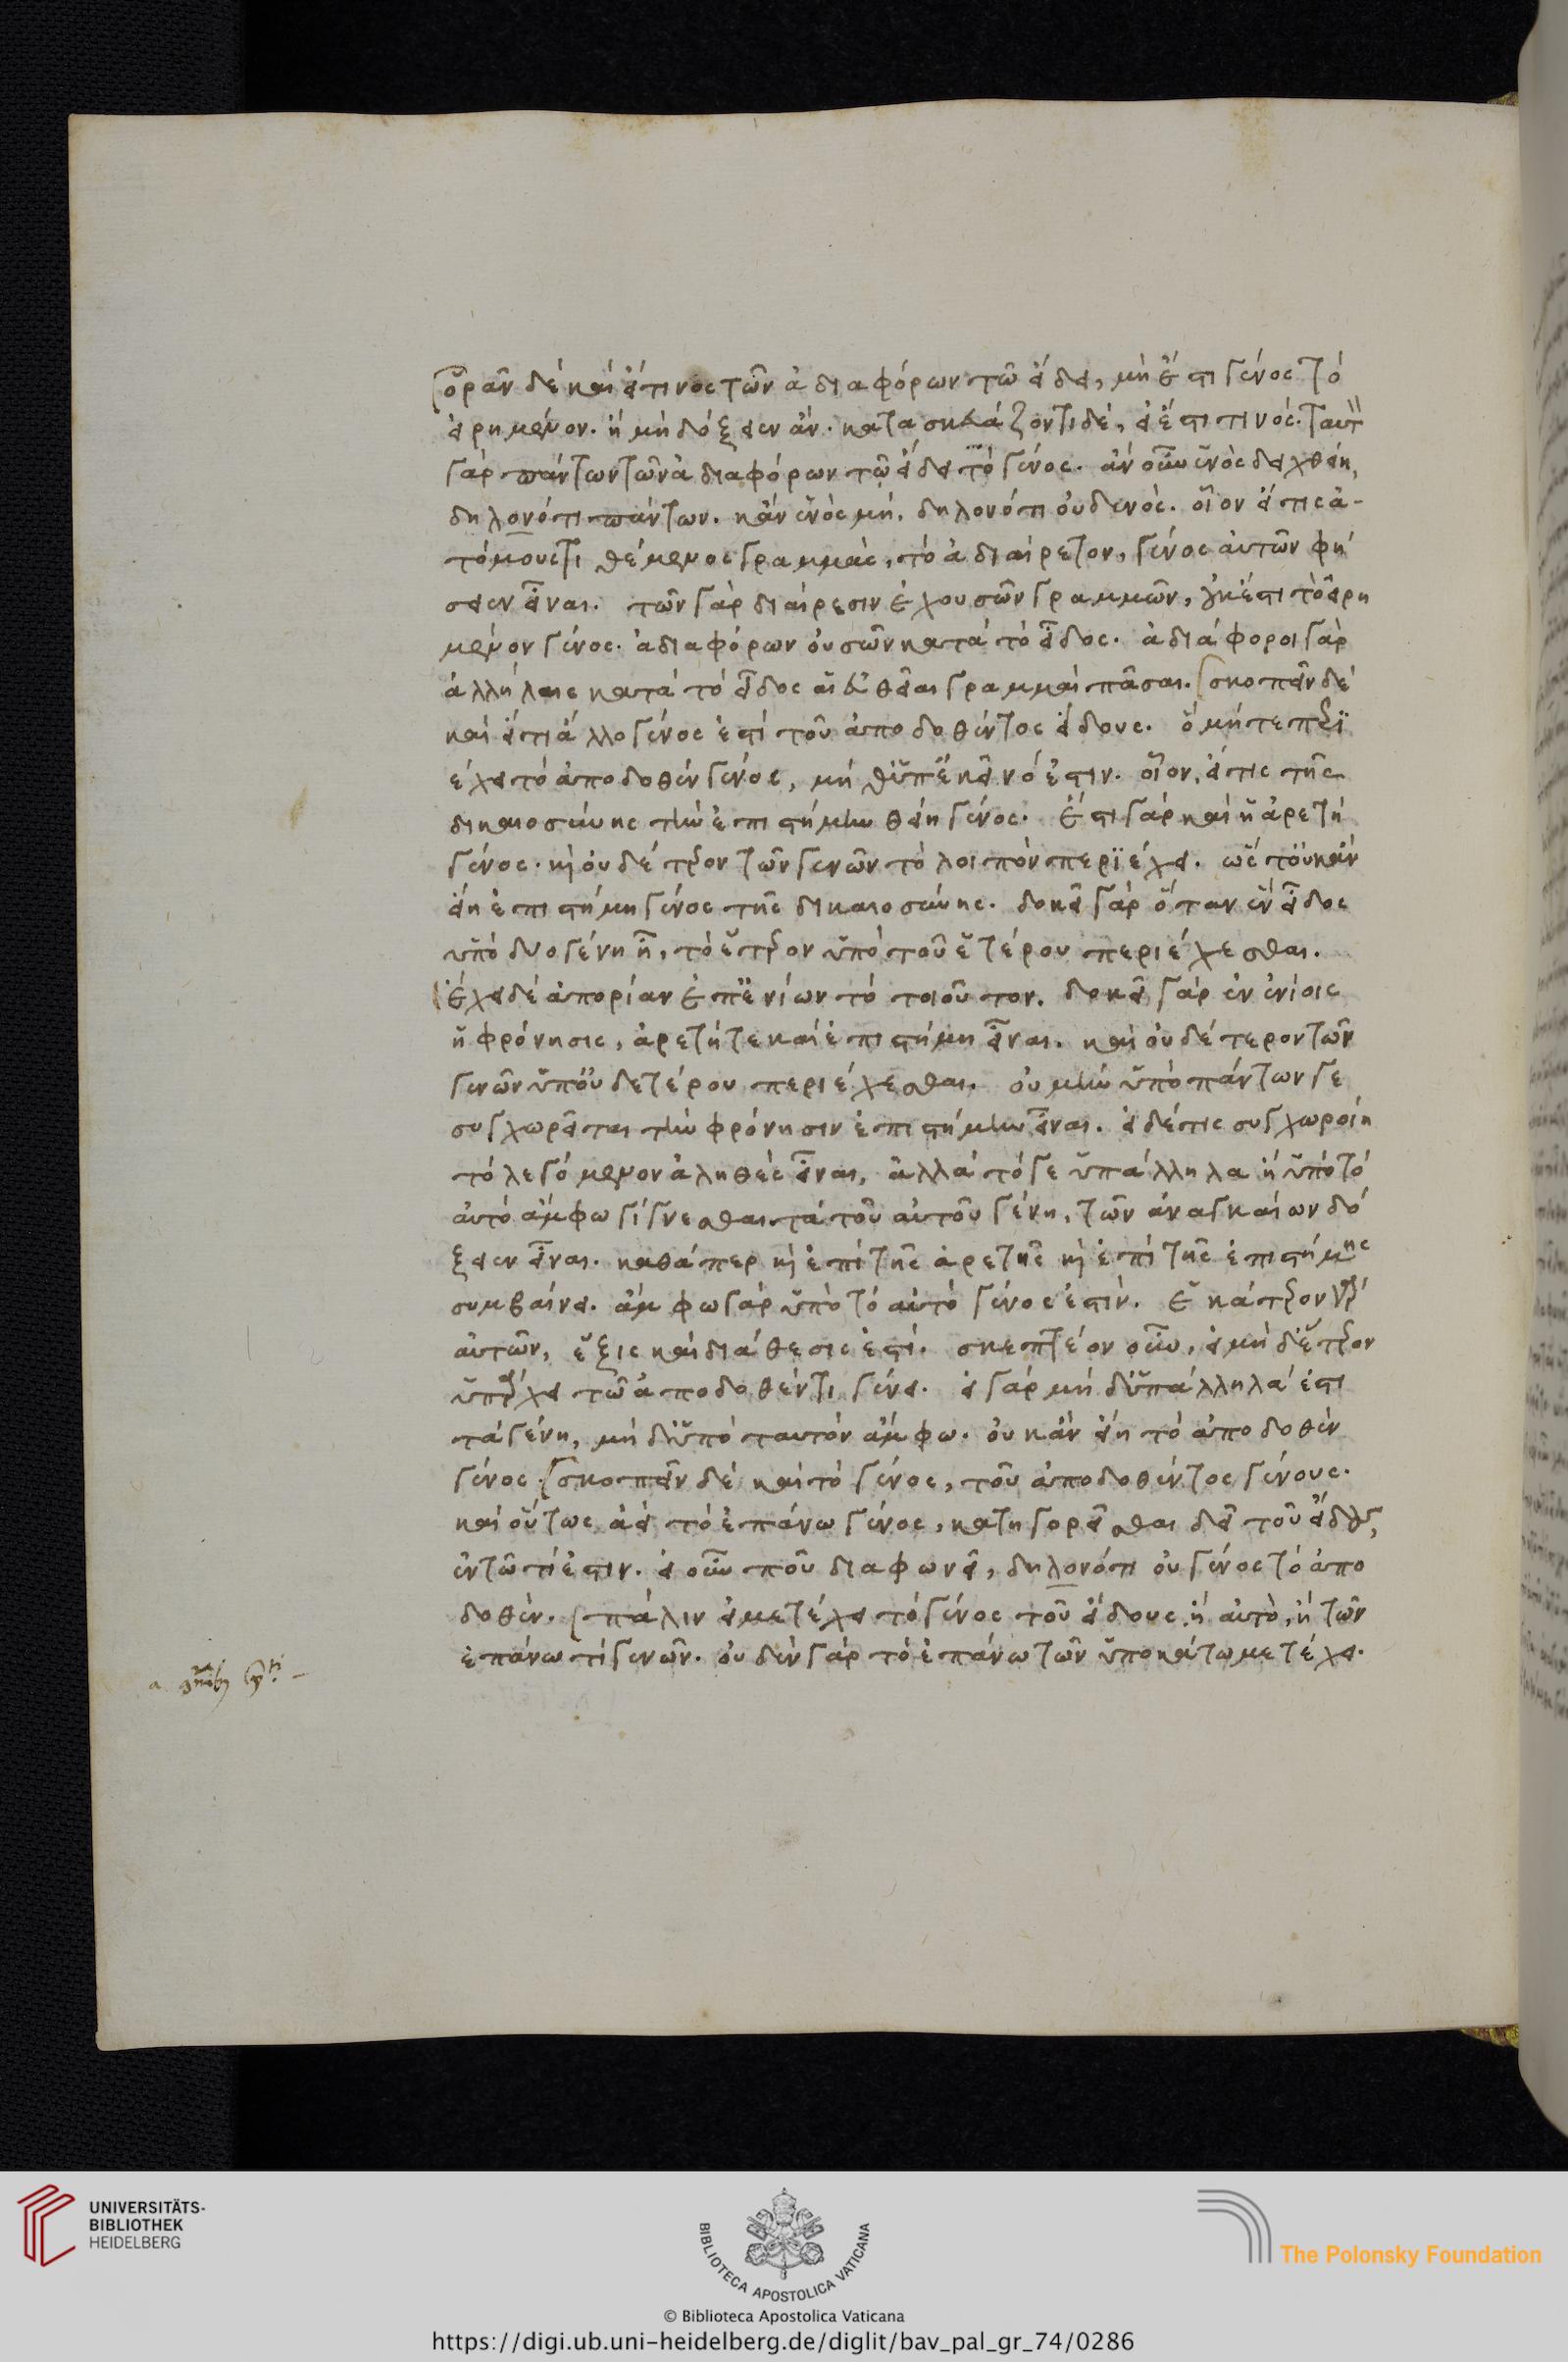 ὁρᾶν δὲ καὶ εἴ τινος τῶν ἀδιαφόρων τῶ εἴδει, μὴ ἔστι γένος τὸ
εἰρημένον. ἢ μὴ δόξειεν ἄν. κατασκευάζοντι δὲ, εἰ ἔστι τινός. ταυτ
γὰρ πάντων τῶν ἀδιαφόρων τῶ εἴδει τὸ γένος. ἂν οὖν ἑνὸς δειχθείη,
δηλονότι πάντων. κἂν ἑνὸς μή, δηλονότι οὐδενός. οἷον εἴ τις ἀ-
τόμους τιθέμενος γραμμὰς, τὸ ἀδιαίρετον, γένος αὐτῶν φή
σειεν εἶναι. τῶν γὰρ διαίρεσιν ἐχουσῶν γραμμῶν, οὐκ ἔστι τὸ εἰρη
μένον γένος. ἀδιαφόρων οὐσῶν κατὰ τὸ εἶδος. ἀδιάφοροι γὰρ
ἀλλήλαις κατὰ τὸ εἶδος αἱ εὐθεῖαι γραμμαὶ πᾶσαι. σκοπεῖν δὲ
καὶ εἴ τι ἄλλο γένος ἐστὶ τοῦ ἀποδοθέντος εἴδους. ὃ μήτε περι
έχει τὸ ἀποδοθὲν γένος, μήθ' ὑπ' ἐκεῖνό ἐστιν. οἷον, εἴ τις τῆς
δικαιοσύνης τὴν ἐπιστήμην θείη γένος. ἔστι γὰρ καὶ ἡ ἀρετὴ
γένος. καὶ οὐδέτερον τῶν γενῶν τὸ λοιπὸν περιέχει. ὥστ' οὐκ ἂν
εἴη ἐπιστήμη γένος τῆς δικαιοσύνης. δοκεῖ γὰρ ὅταν ἓν εἶδος
ὑπὸ δύο γένη ἦ, τὸ ἕτερον ὑπὸ τοῦ ἑτέρου περιέχεσθαι.
ἔχει δὲ ἀπορίαν ἐπ' ἐνίων τὸ τοιοῦτον. δοκεῖ γὰρ ἐν ἐνίοις
ἡ φρόνησις, ἀρετή τε καὶ ἐπιστήμη εἶναι. καὶ οὐδέτερον τῶν
γενῶν ὑπ' οὐδετέρου περιέχεσθαι. οὐ μὴν ὑπὸ πάντων γε
συγχωρεῖται τὴν φρόνησιν ἐπιστήμην εἶναι. εἰ δέ τις συγχωροίη
τὸ λεγόμενον ἀληθὲς εἶναι, ἀλλὰ τό γε ὑπάλληλα ἢ ὑπὸ τὸ
αὐτὸ ἄμφω γίγνεσθαι τὰ τοῦ αὐτοῦ γένη, τῶν ἀναγκαίων δό
ξειεν εἶναι. καθάπερ καὶ ἐπὶ τῆς ἀρετῆς καὶ ἐπὶ τῆς ἐπιστήμης
συμβαίνει. ἄμφω γὰρ ὑπὸ τὸ αὐτὸ γένος ἐστίν. ἑκάτερον γὰρ
αὐτῶν, ἕξις καὶ διάθεσις ἐστί. σκεπτέον οὖν, εἰ μηδέτερον
ὑπάρχει τῶ ἀποδοθέντι γένει. εἰ γὰρ μήδ' ὑπάλληλά ἐστι
τὰ γένη, μήδ' ὑπὸ ταυτὸν ἄμφω. οὐκ ἂν εἴη τὸ ἀποδοθὲν
γένος. σκοπεῖν δὲ καὶ τὸ γένος, τοῦ ἀποδοθέντος γένους.
καὶ οὕτως ἀεὶ τὸ ἐπάνω γένος, κατηγορεῖσθαι δεῖ τοῦ εἴδους,
ἐν τῶ τί ἐστιν. εἰ οὖν που διαφωνεῖ, δηλονότι οὐ γένος τὸ ἀπο
δοθέν. πάλιν εἰ μετέχει τὸ γένος τοῦ εἴδους. ἢ αὐτὸ, ἢ τῶν
ἐπάνω τί γενῶν. οὐδὲν γὰρ τὸ ἐπάνω τῶν ὑποκάτω μετέχει.
UNIVERSITÄTS-
BIBLIOTHEK
HEIDELBERG
BIBLIOTECA APOSTOLICA VATICANA
The Polonsky Foundation
© Biblioteca Apostolica Vaticana
https://digi.ub.uni-heidelberg.de/diglit/bav_pal_gr_74/0286